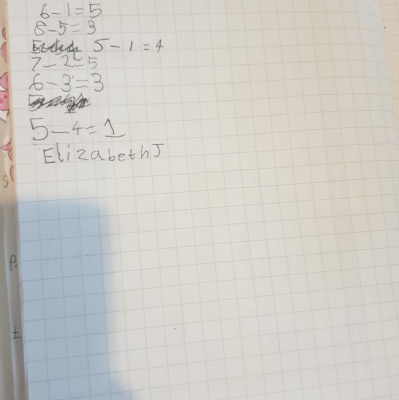 6-1=5
8-5=3
5-1=4
7-2=5
6-3=3
5-4=1
Elizabeth J